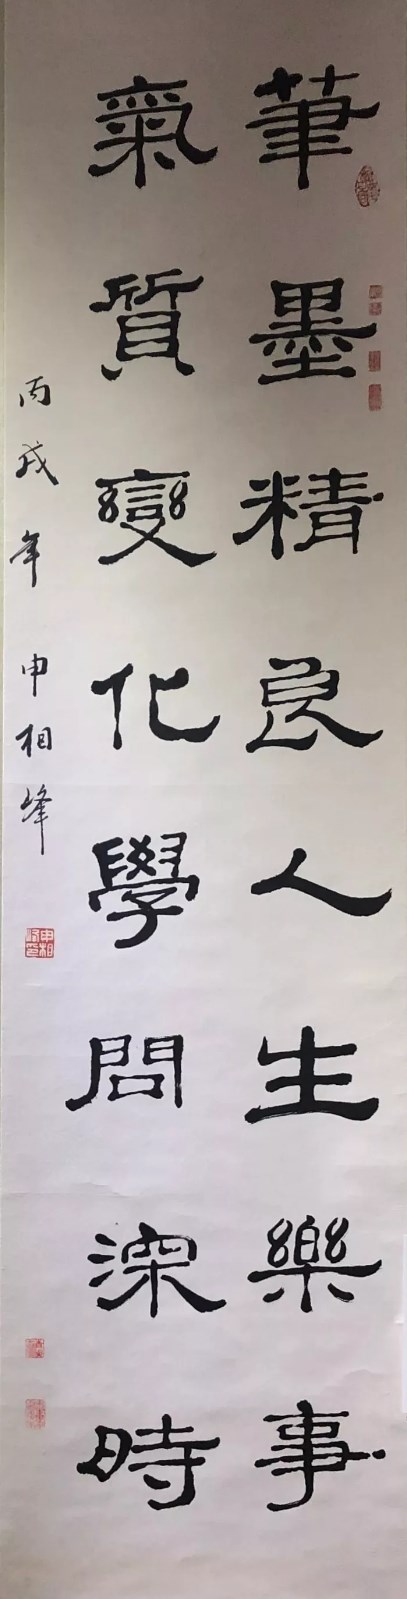 筆墨精良人生樂事
氣質變化學問深時
丙戌年 申相峰